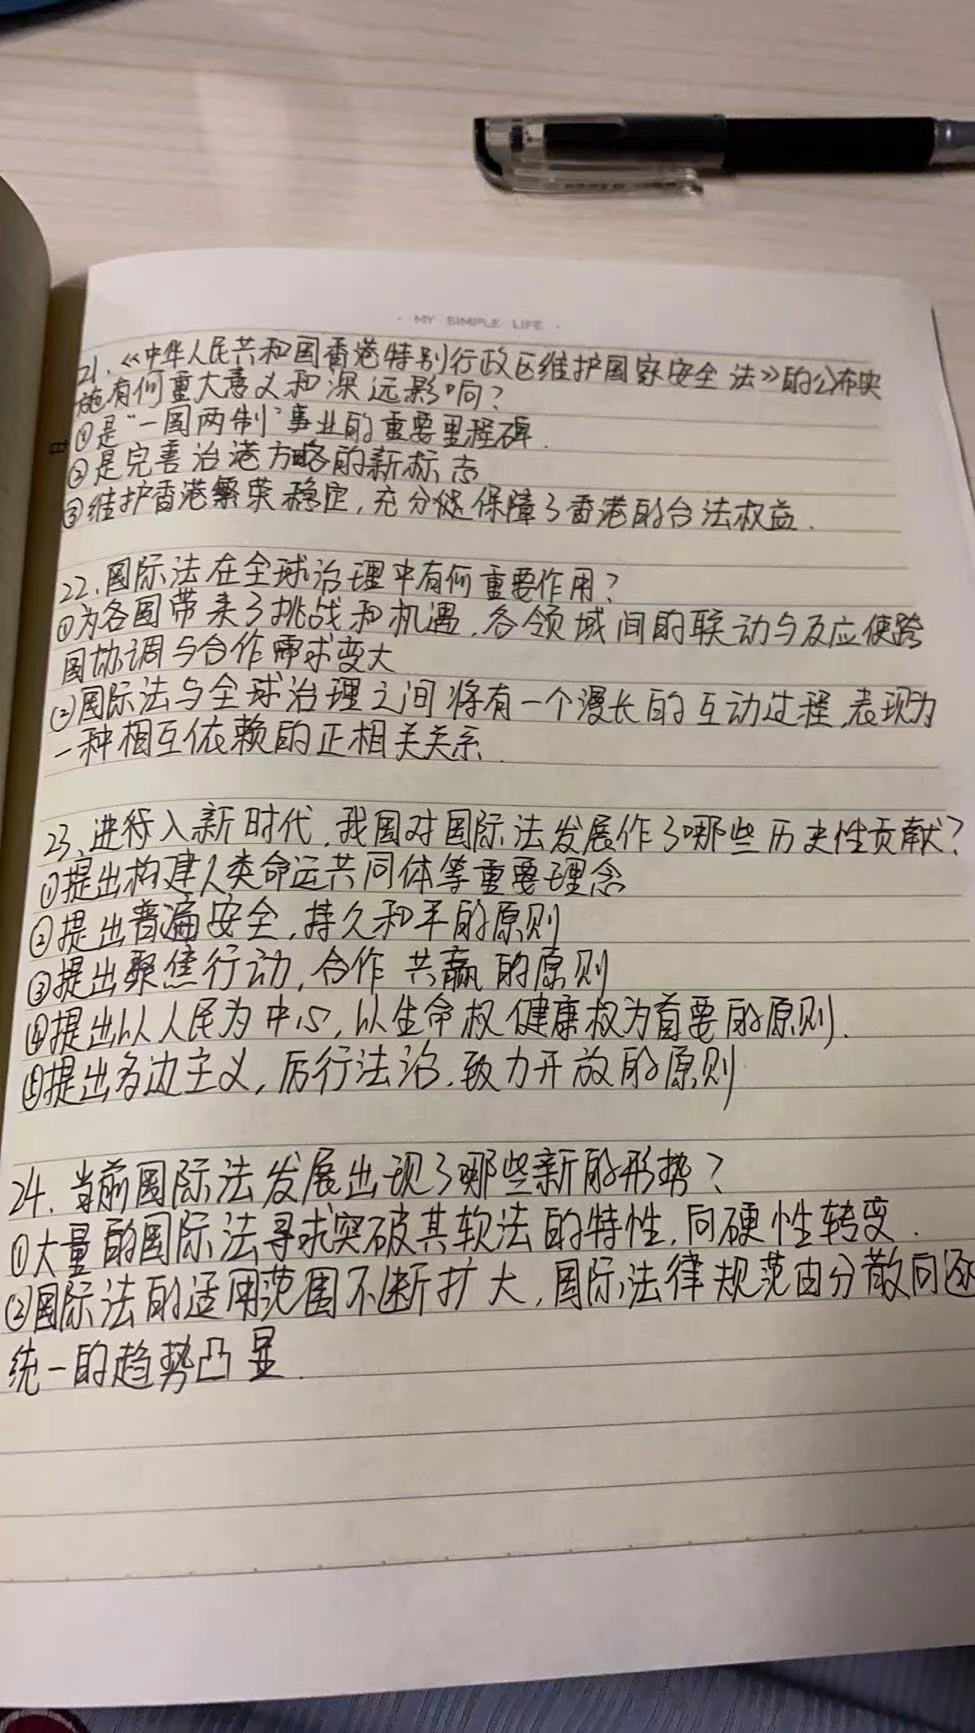 · MY SIMPLE LIFE ·
21.《中华人民共和国香港特别行政区维护国家安全法》的公布实
施有何重大意义和深远影响？
①是“一国两制”事业的重要里程碑.
②是完善治港方略的新标志
③维护香港繁荣稳定,充分保障了香港的合法权益.
22.国际法在全球治理中有何重要作用？
①为各国带来了挑战和机遇.各领域间的联动与反应使跨
国协调与合作需求变大
②国际法与全球治理之间将有一个漫长的互动过程,表现为
一种相互依赖的正相关关系.
23、进入新时代,我国对国际法发展作了哪些历史性贡献？
①提出构建人类命运共同体等重要理念
②提出普遍安全,持久和平的原则
③提出聚焦行动,合作共赢的原则
④提出以人民为中心,以生命权健康权为首要的原则.
⑤提出多边主义,厉行法治.致力开放的原则
24.当前国际法发展出现了哪些新的形势？
①大量的国际法寻求突破其软法的特性,向硬性转变.
②国际法的适用范围不断扩大,国际法律规范由分散向
统一的趋势凸显.